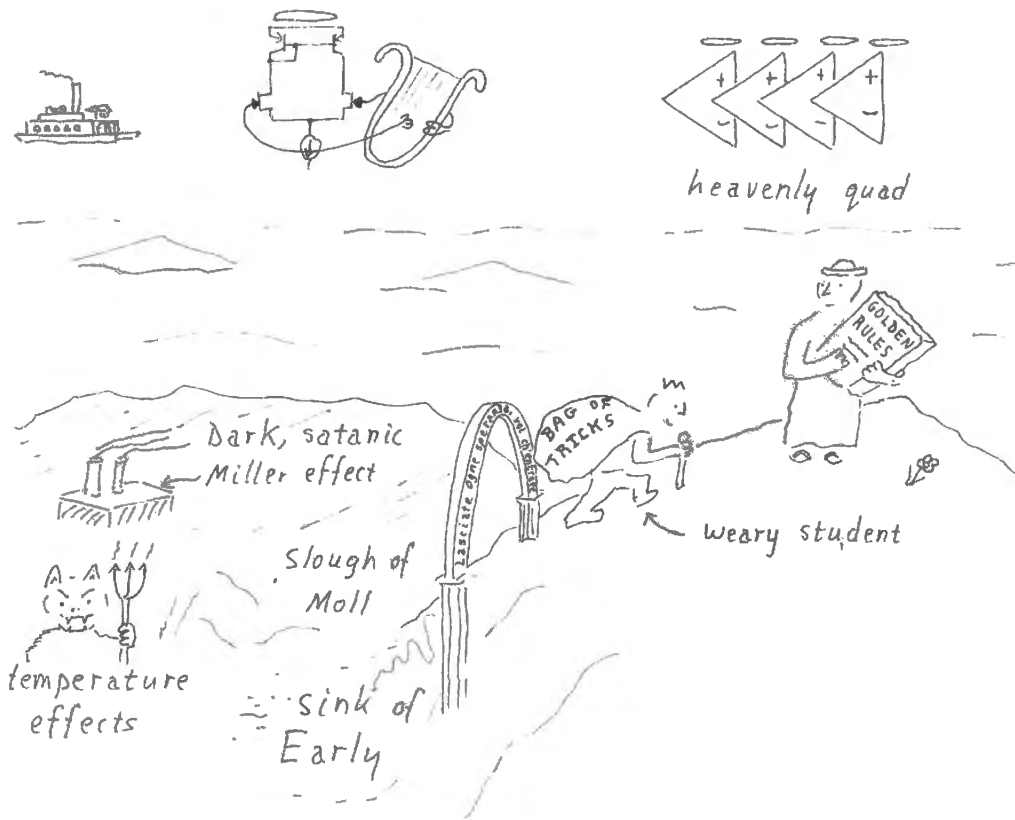 + + + +
- - - -
heavenly quad
GOLDEN
RULES
BAG OF
TRICKS
Lasciate ogne speranza, voi ch'entrate
Dark, satanic
Miller effect
weary student
Slough of
Moll
temperature
effects
sink of
Early